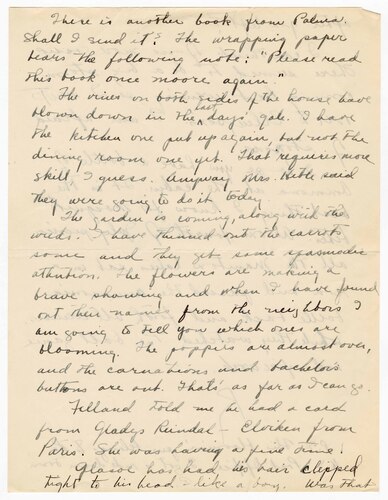 There is another book from Palma.
Shall I send it? The wrapping paper
bears the following note: "Please read
this book once moore again."
The vines on both sides of the house have
blown down in the last days' gale. I have
the kitchen one put up again, but not the
dining room one yet. That requires more
skill I guess. Anyway Mrs. Kittle said
they were going to do it today.
The garden is coming, along with the
weeds. I have thinned out the carrots
some and they get some spasmodic
attention. The flowers are making a
brave showing and when I have found
out their names from the neighbors I
am going to tell you which ones are
blooming. The poppies are almost over,
and the carnations and bachelors
buttons are out. That's as far as I can go.
told me he had a card
from Gladys Rundal - Clerken from
Paris. She was having a fine time.
has had his hair clipped
tight to his head - like a boy. Was that